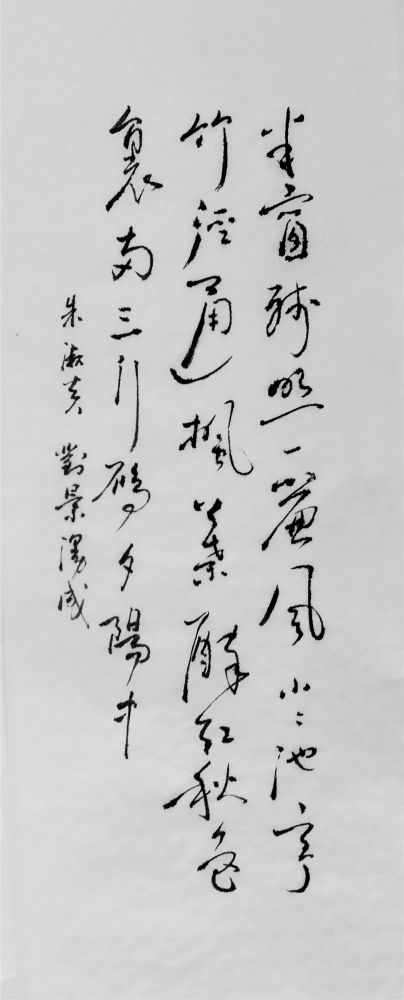 半窗殘照一簾風小々池亭
竹徑通楓葉醉紅秋色
裏兩三行鴈夕陽中
朱淑真 對景漫成